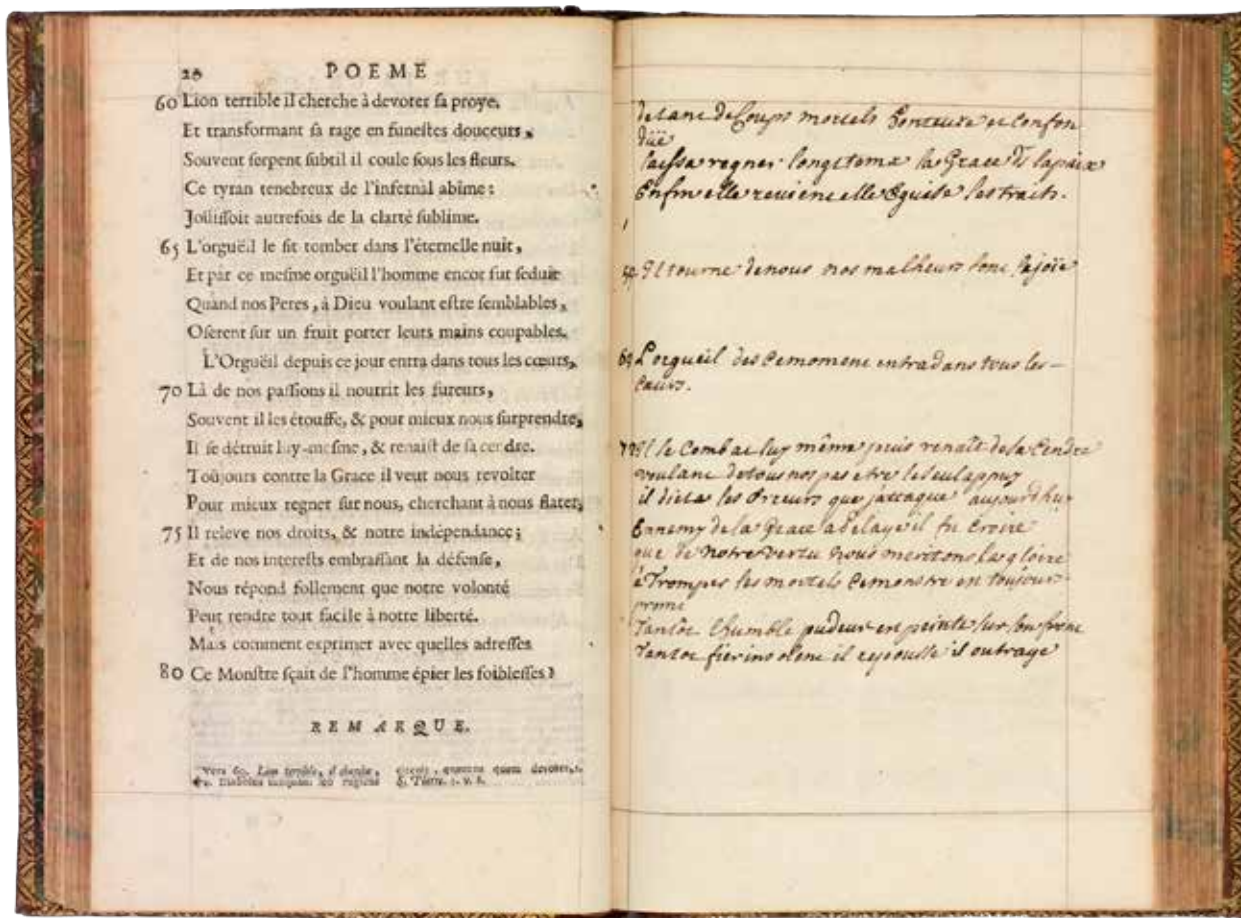 20 POEME
60 Lion terrible il cherche à devorer sa proye.
Et transformant sa rage en funestes douceurs,
Souvent serpent subtil il coule sous les fleurs.
Ce tyran tenebreux de l'infernal abîme:
Joüissoit autrefois de la clarté sublime.
65 L'orguëil le fit tomber dans l'éternelle nuit,
Et par ce mesme orguëil l'homme encor fut seduit
Quand nos Peres, à Dieu voulant estre semblables,
Oserent sur un fruit porter leurs mains coupables.
L'Orguëil depuis ce jour entra dans tous les cœurs,
70 Là de nos passions il nourrit les fureurs,
Souvent il les étouffe, & pour mieux nous surprendre,
Il se détruit luy-mesme, & renaist de sa cendre.
Toûjours contre la Grace il veut nous revolter
Pour mieux regner sur nous, cherchant à nous flater,
75 Il releve nos droits, & notre indépendance;
Et de nos interests embrassant la défense,
Nous répond follement que notre volonté
Peut rendre tout facile à notre liberté.
Mais comment exprimer avec quelles adresses
80 Ce Monstre sçait de l'homme épier les foiblesses?
REMARQUE.
Vers 60. Lion terrible, il cherche, circuit, quærens quem devoret, 1.
&c. Diabolus tanquam leo rugiens S. Pierre. 5. v. 8.
de tant de Coups mortels honteuse et Confon
düe
laissa regner longtems la Grace & la paix
Enfin elle revient elle éguise ses traits.
59 Il tourne de nous, nos malheurs sont sa joïe
69 L'orgueil des ce moment entra dans tous les
Cœurs.
72 Il se Combat luy même puis renaît de sa Cendre
voulant de tous nos pas etre le seul appuy
il dicta les Erreurs que j'attaque aujourd'huy
Ennemy de la Grace a Pelage il fit Croire
que de notre vertu nous meritons la gloire
à Tromper les mortels ce monstre est toujours
promt
Tantôt l'humble pudeur est peinte sur son front
Tantot fier insolent il il outrage